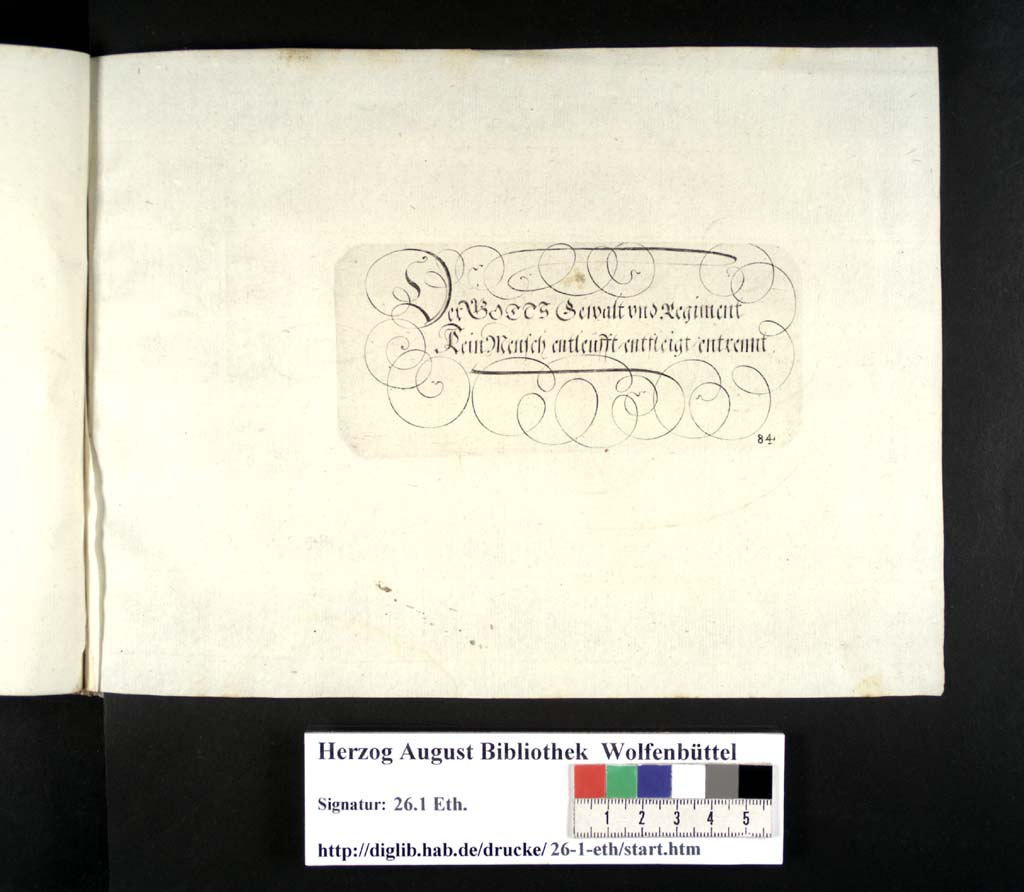 Der GOTTS Gewalt vnd Regiment
Kein Mensch entleufft/entfleigt/entrennt
84.
Herzog August Bibliothek Wolfenbüttel
Signatur: 26.1 Eth.
1 2 3 4 5
http://diglib.hab.de/drucke/ 26-1-eth/start.htm